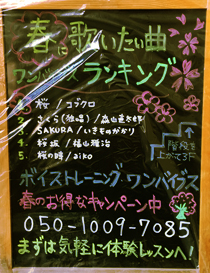 春に歌いたい曲
ワンバイブス ランキング
1. 桜 / コブクロ
2. さくら(独唱) / 森山直太郎
3. SAKURA / いきものがかり
4. 桜坂 / 福山雅治
5. 桜の時 / aiko
階段を
上がって3F
ボイストレーニング ワンバイブス
春のお得なキャンペーン中
050-1009-7085
まずは気軽に体験レッスンへ!